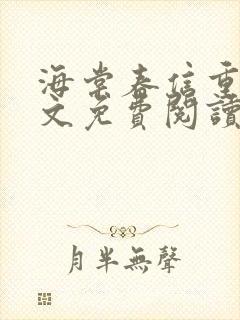 海棠春信重
文免費閱讀
月半無聲